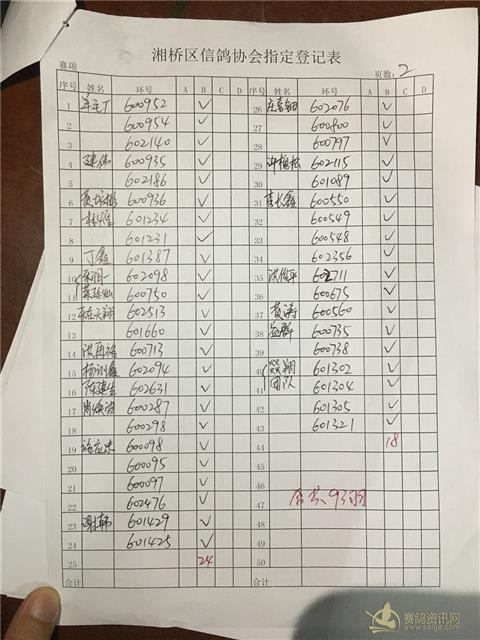 湘桥区信鸽协会指定登记表
赛项
页数: 2
序号 姓名 环号 A B C D 序号 姓名 环号 A B C D
1 600952 ✓ 26 602076 ✓
2 600954 ✓ 27 600800 ✓
3 602140 ✓ 28 600797 ✓
4 建伟 600935 ✓ 29 602115 ✓
5 602186 ✓ 30 601089 ✓
6 600936 ✓ 31 600550 ✓
7 601234 ✓ 32 600549 ✓
8 601231 ✓ 33 600548 ✓
9 丁鑫 601387 ✓ 34 602356 ✓
10 602098 ✓ 35 602711 ✓
11 600750 ✓ 36 600675 ✓
12 602513 ✓ 37 黄涛 600560 ✓
13 601660 ✓ 38 益群 600735 ✓
14 600713 ✓ 39 600738 ✓
15 602094 ✓ 40 601302 ✓
16 陈建生 602631 ✓ 41 团队 601304 ✓
17 600287 ✓ 42 601305 ✓
18 600298 ✓ 43 601321 ✓
19 600098 ✓ 44 18
20 600095 ✓ 45
21 600097 ✓ 46
22 602476 ✓ 47 合共93羽
23 谢韩 601429 ✓ 48
24 601425 ✓ 49
25 24 50
合计 合计
赛鸽资讯网
www.saige.com